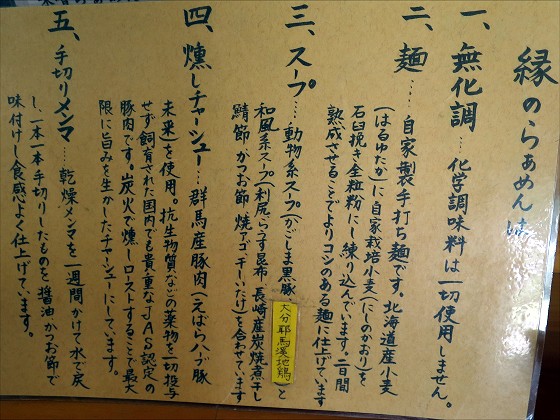 縁のらぁめんは
一、無化調…化学調味料は一切使用しません。
二、麺…自家製手打ち麺です。北海道産小麦
(はるゆたか)に自家栽培小麦(にしのかおり)を
石臼挽き全粒粉にし練り込んでいます。二日間
熟成させることでよりコシのある麺に仕上げています
三、スープ…動物系スープ(かごしま黒豚
大分耶馬渓地鶏)と
和風系スープ(利尻、らうす昆布 長崎産炭焼煮干し
鯖節、かつお節 焼アゴ 干しいたけ)を合わせています
四、燻しチャーシュー…群馬産豚肉(えばらハーブ豚
未来)を使用。抗生物質などの薬物を一切投与
せず飼育された国内でも貴重なJAS認定の
豚肉です。炭火で燻しローストすることで最大
限に旨みを生かしたチャーシューにしています。
五、手切りメンマ…乾燥メンマを一週間かけて水で戻
し、一本一本手切りしたものを醤油 かつお節で
味付けし食感よく仕上げています。